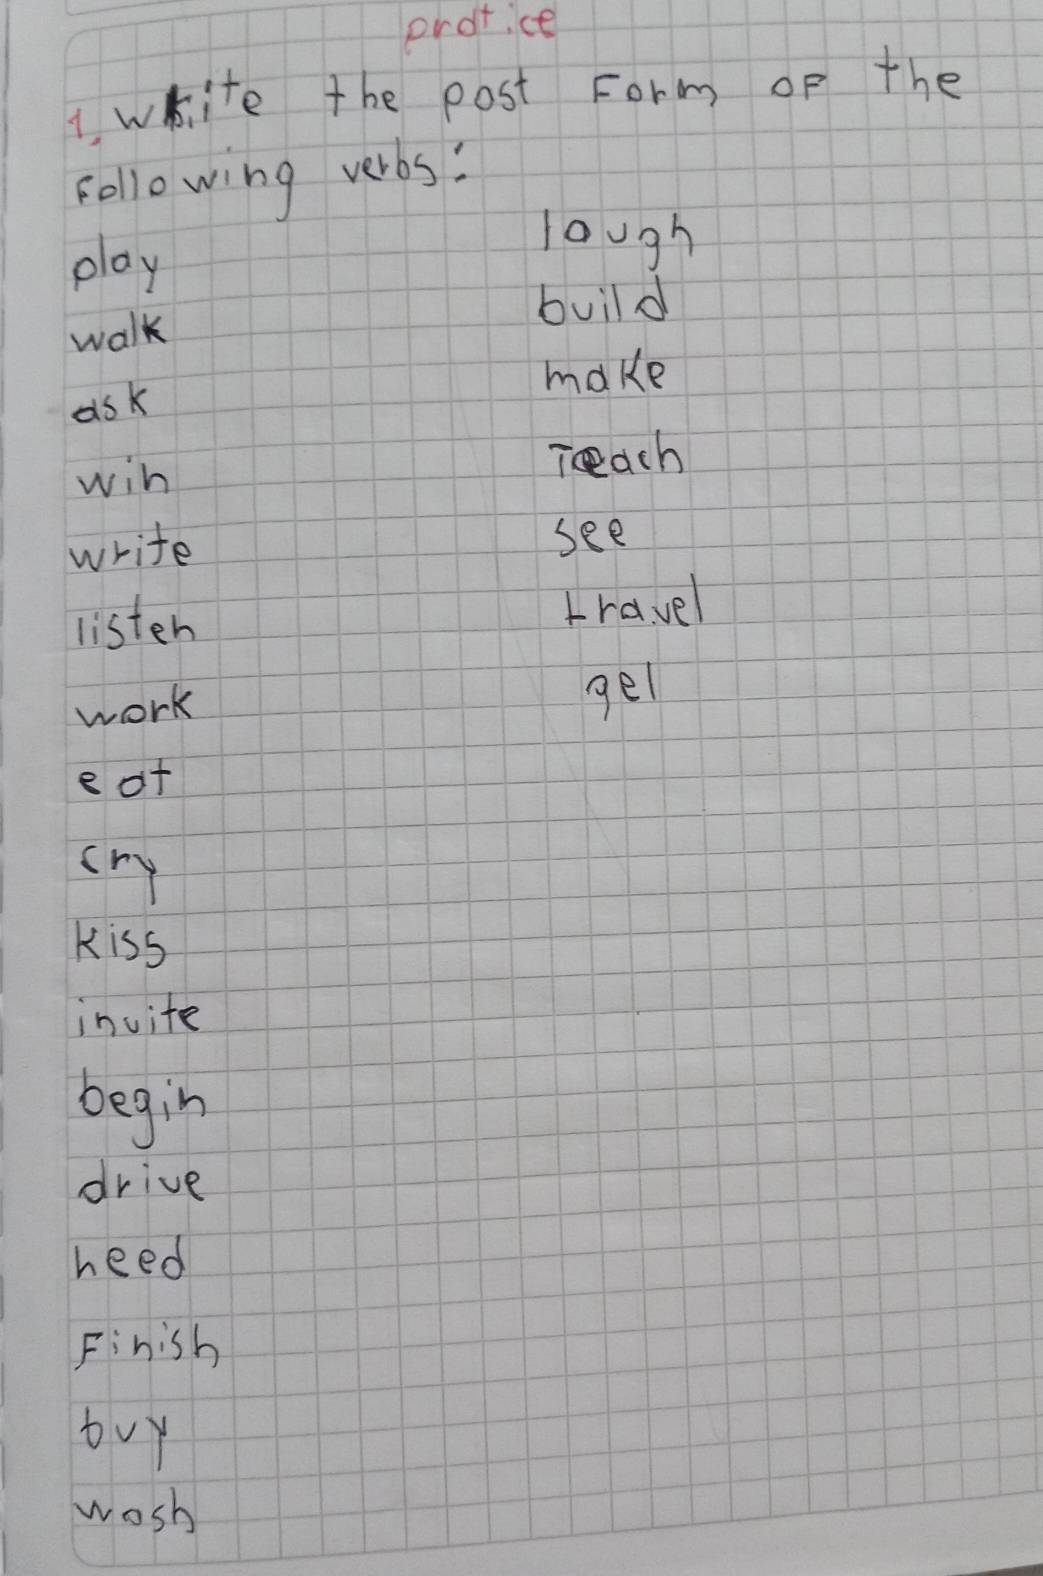 practice
1. Write the past Form of the
Following verbs:
play
walk
ask
win
write
listen
work
eat
cry
kiss
invite
begin
drive
need
Finish
buy
wash
laugh
build
make
Teach
see
travel
gel